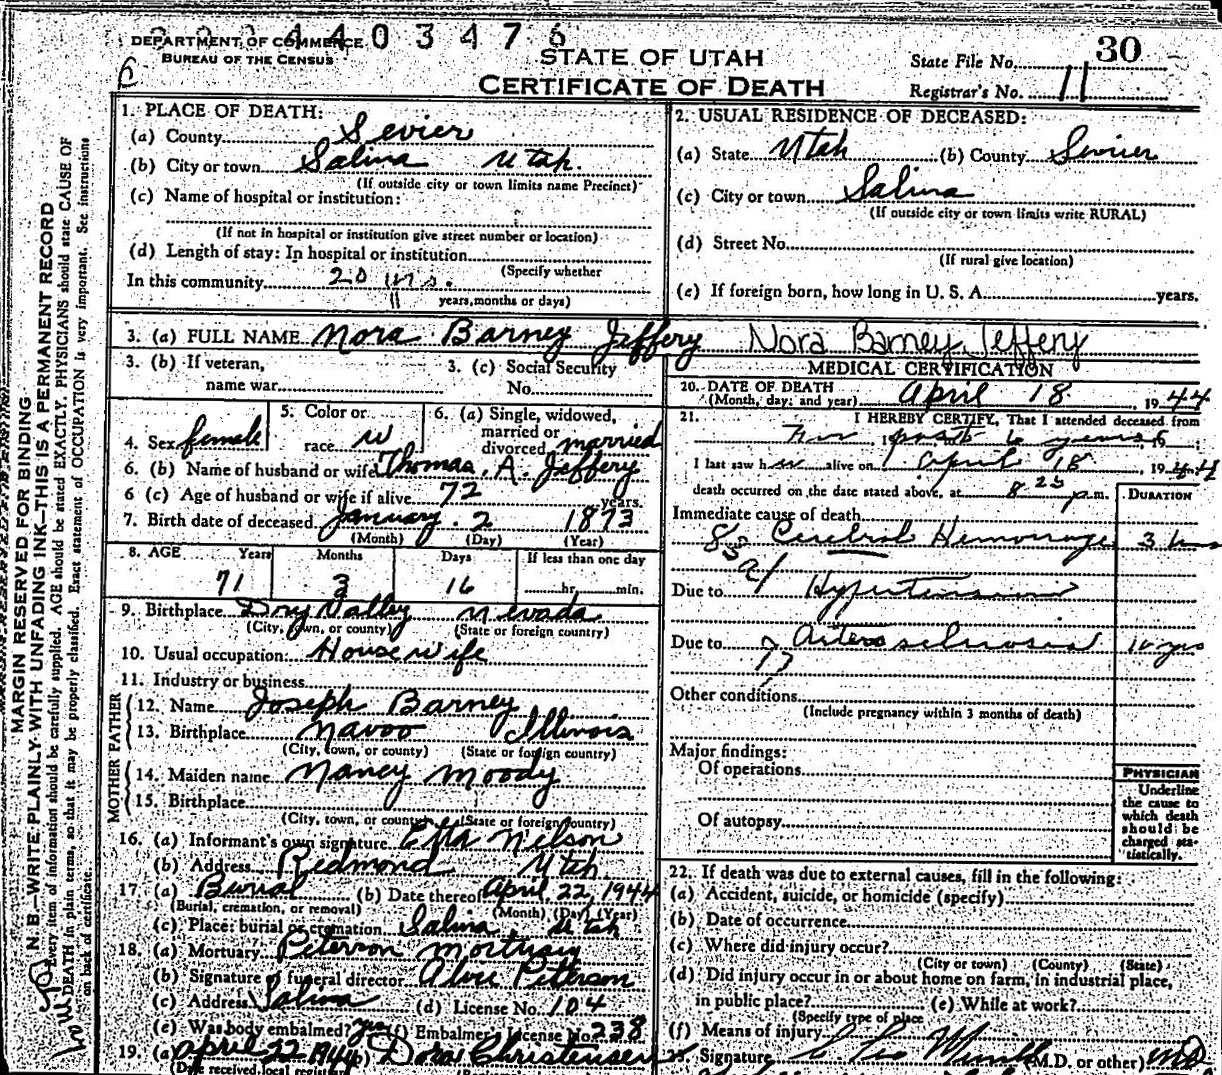 DEPARTMENT OF COMMERCE
BUREAU OF THE CENSUS
4 4 0 3 4 7 6
STATE OF UTAH
CERTIFICATE OF DEATH
State File No. 30
Registrar's No. 11
MARGIN RESERVED FOR BINDING
N. B.—WRITE PLAINLY WITH UNFADING INK—THIS IS A PERMANENT RECORD
Every item of information should be carefully supplied. AGE should be stated EXACTLY. PHYSICIANS should state CAUSE OF
DEATH in plain terms, so that it may be properly classified. Exact statement of OCCUPATION is very important. See instructions
on back of certificate.
1. PLACE OF DEATH:
(a) County Sevier
(b) City or town Salina Utah.
(If outside city or town limits name Precinct)
(c) Name of hospital or institution:
(If not in hospital or institution give street number or location)
(d) Length of stay: In hospital or institution
(Specify whether
In this community 20 yrs.
years, months or days)
2. USUAL RESIDENCE OF DECEASED:
(a) State Utah (b) County Sevier
(c) City or town Salina
(If outside city or town limits write RURAL)
(d) Street No.
(If rural give location)
(e) If foreign born, how long in U. S. A. years.
3. (a) FULL NAME Nora Barney Jeffery Nora Barney Jeffery
3. (b) If veteran,
name war
3. (c) Social Security
No.
4. Sex female
5. Color or
race w
6. (a) Single, widowed,
married or
divorced married
6. (b) Name of husband or wife Thomas. A. Jeffery
6 (c) Age of husband or wife if alive 72 years.
7. Birth date of deceased January 2 1873
(Month) (Day) (Year)
8. AGE Years Months Days If less than one day
71 3 16 hr. min.
9. Birthplace Dry Valley Nevada
(City, town, or county) (State or foreign country)
10. Usual occupation: House wife
11. Industry or business
FATHER
12. Name Joseph Barney
13. Birthplace Navoo Illinois
(City, town, or county) (State or foreign country)
MOTHER
14. Maiden name Nancy Moody
15. Birthplace
(City, town, or county) (State or foreign country)
16. (a) Informant's own signature Etta Nelson
(b) Address Redmond Utah
17. (a) Burial (b) Date thereof April, 22, 1944
(Burial, cremation, or removal) (Month) (Day) (Year)
(c) Place: burial or cremation Salina, Utah
18. (a) Mortuary Peterson Mortuary
(b) Signature of funeral director Peterson
(c) Address Salina (d) License No. 104
(e) Was body embalmed? yes (f) Embalmer's License No. 238
19. (a) April 22 1944 Dora Christensen
(Date received local
MEDICAL CERTIFICATION
20. DATE OF DEATH
(Month, day, and year) April 18, 1944
21. I HEREBY CERTIFY, That I attended deceased from
past 6 years
I last saw her alive on April 18, 1944
death occurred on the date stated above, at 8 25 p.m.
DURATION
Immediate cause of death
Cerebral Hemorrage 3 hrs
Due to Hypertension
Due to Arterosclerosis 10 yrs
Other conditions
(Include pregnancy within 3 months of death)
Major findings:
Of operations
Of autopsy
PHYSICIAN
Underline
the cause to
which death
should be
charged sta-
tistically.
22. If death was due to external causes, fill in the following:
(a) Accident, suicide, or homicide (specify)
(b) Date of occurrence
(c) Where did injury occur?
(City or town) (County) (State)
(d) Did injury occur in or about home on farm, in industrial place,
in public place? (e) While at work?
(Specify type of place
(f) Means of injury
Signature (M.D. or other) MD